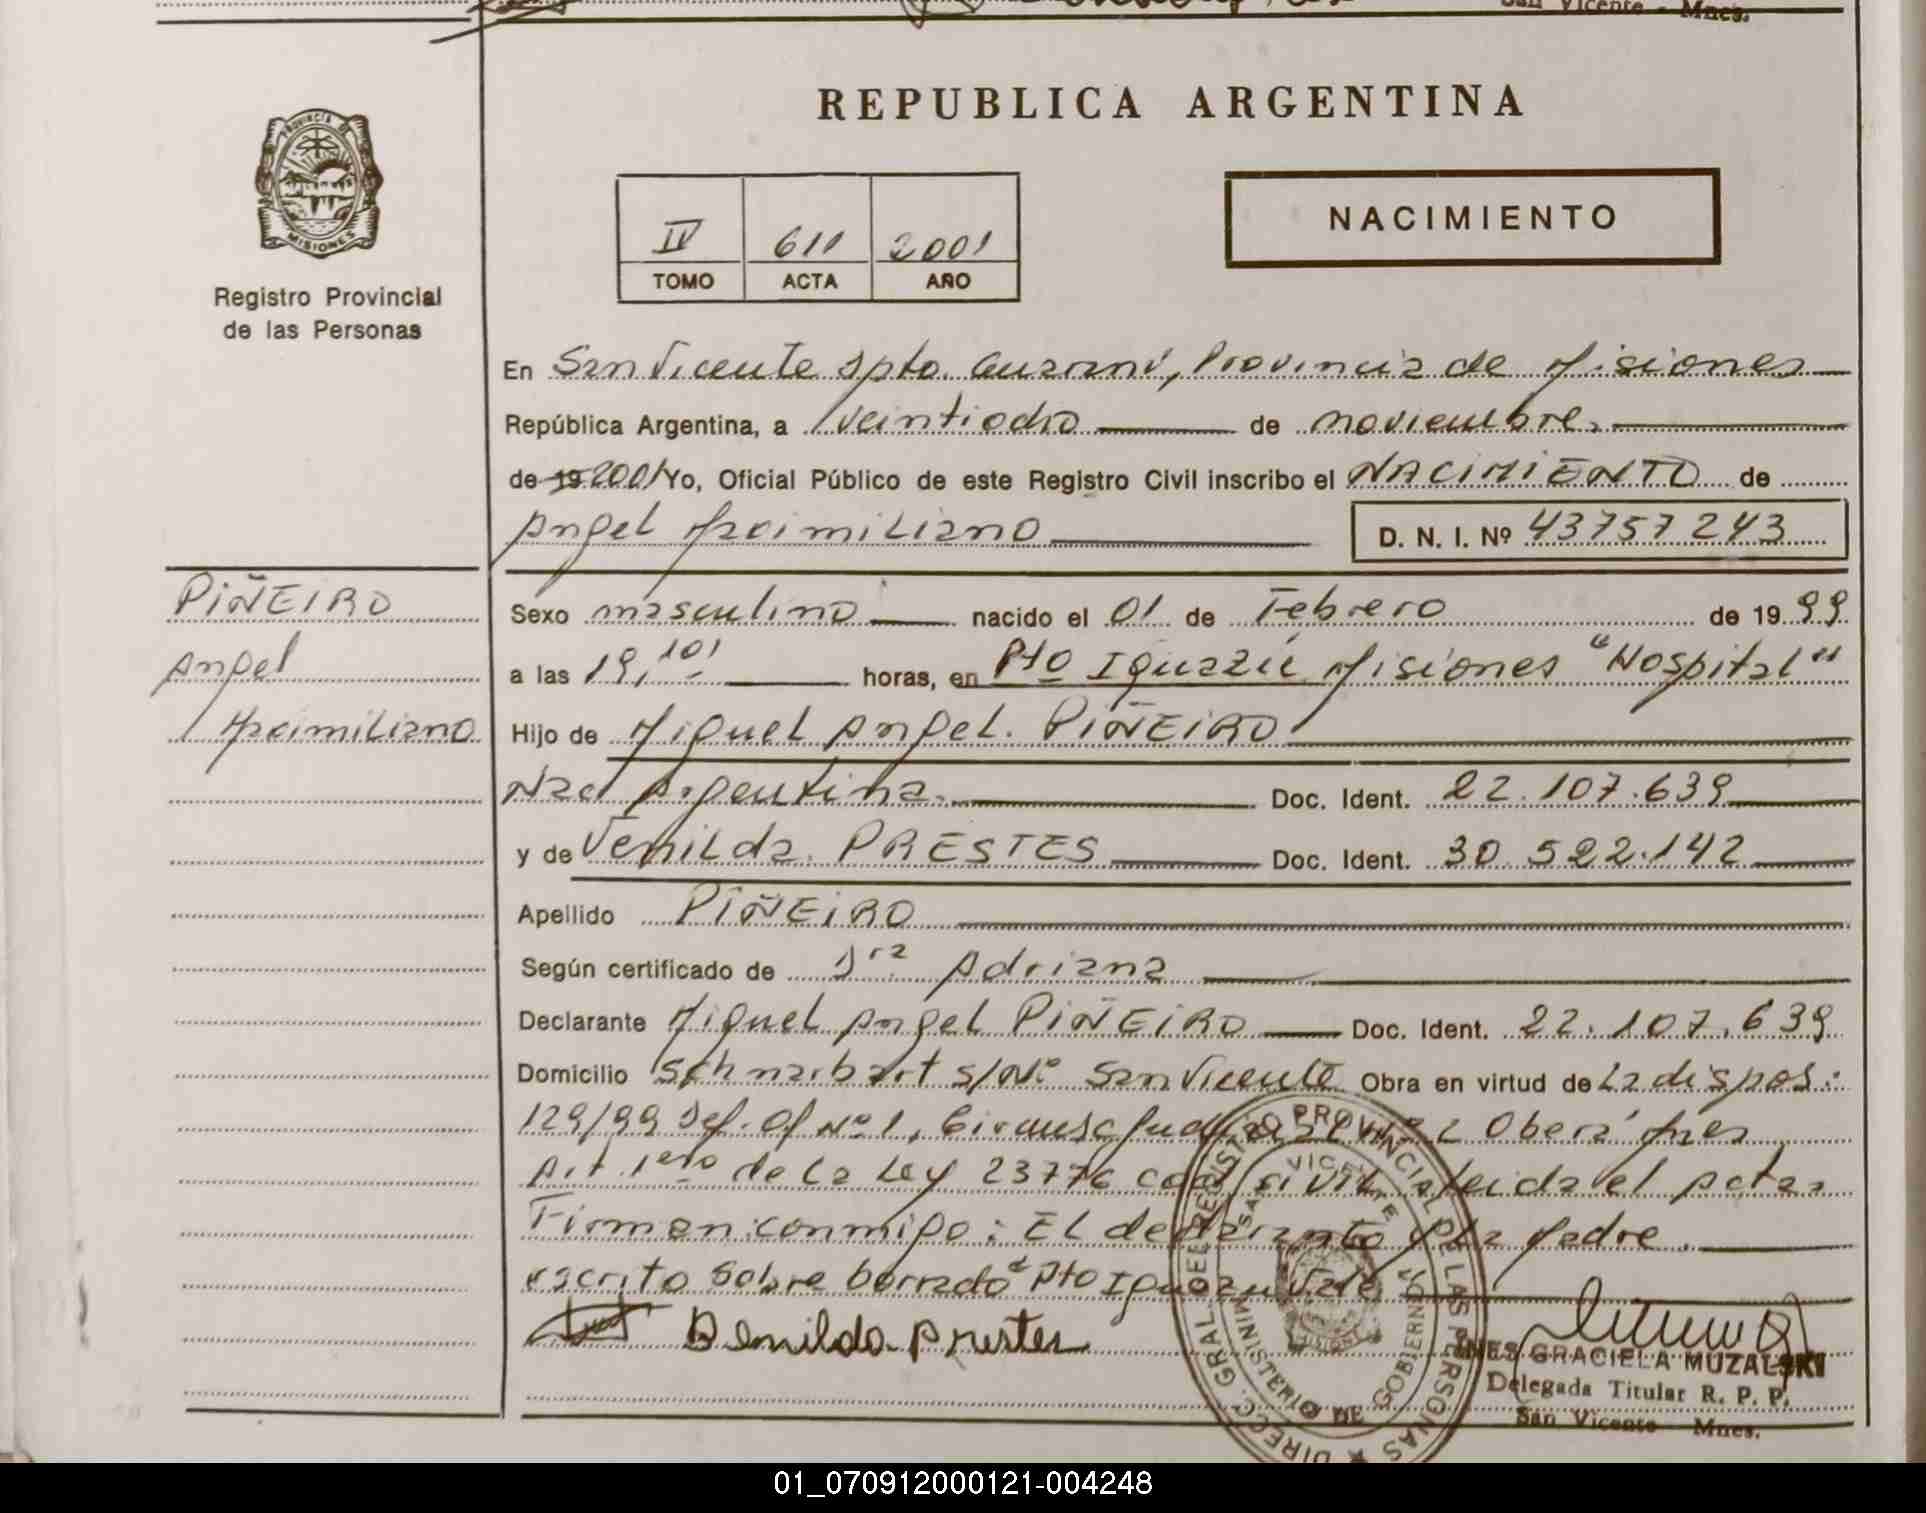 San Vicente - Mnes.
REPUBLICA ARGENTINA
PROVINCIA DE
MISIONES
Registro Provincial
de las Personas
IV 611 2001
TOMO ACTA AÑO
NACIMIENTO
En San Vicente Dpto. Guaraní, Provincia de Misiones
República Argentina, a veintiocho de noviembre.
de 19 2001 Yo, Oficial Público de este Registro Civil inscribo el NACIMIENTO de
Angel Maximiliano D. N. I. Nº 43757243
PIÑEIRO
Angel
Maximiliano
Sexo masculino nacido el 01 de Febrero de 1999
a las 19,10' horas, en Pto Iguazú Misiones "Hospital"
Hijo de Miguel Angel. PIÑEIRO
Nac Argentina. Doc. Ident. 22.107.639
y de Venilda PRESTES Doc. Ident. 30.522.142
Apellido PIÑEIRO
Según certificado de Dra Adriana
Declarante Miguel Angel PIÑEIRO Doc. Ident. 22.107.639
Domicilio Schnarbart s/Nº San Vicente Obra en virtud de La dispos:
129/99 Def. Of Nº 1, Circunsc Oberá Mnes
Art. 1ero de La Ley 23776 civil, Leida el acta,
Firman conmigo: El declarante y La Madre.
escrito sobre borrado Pto Iguazu Vale
Denilda Prestes
DIRECC. GRAL. DEL REGISTRO PROVINCIAL DE LAS PERSONAS
SAN VICENTE
MINISTERIO DE GOBIERNO
INES GRACIELA MUZALSKI
Delegada Titular R. P. P.
San Vicente - Mnes.
01_070912000121-004248